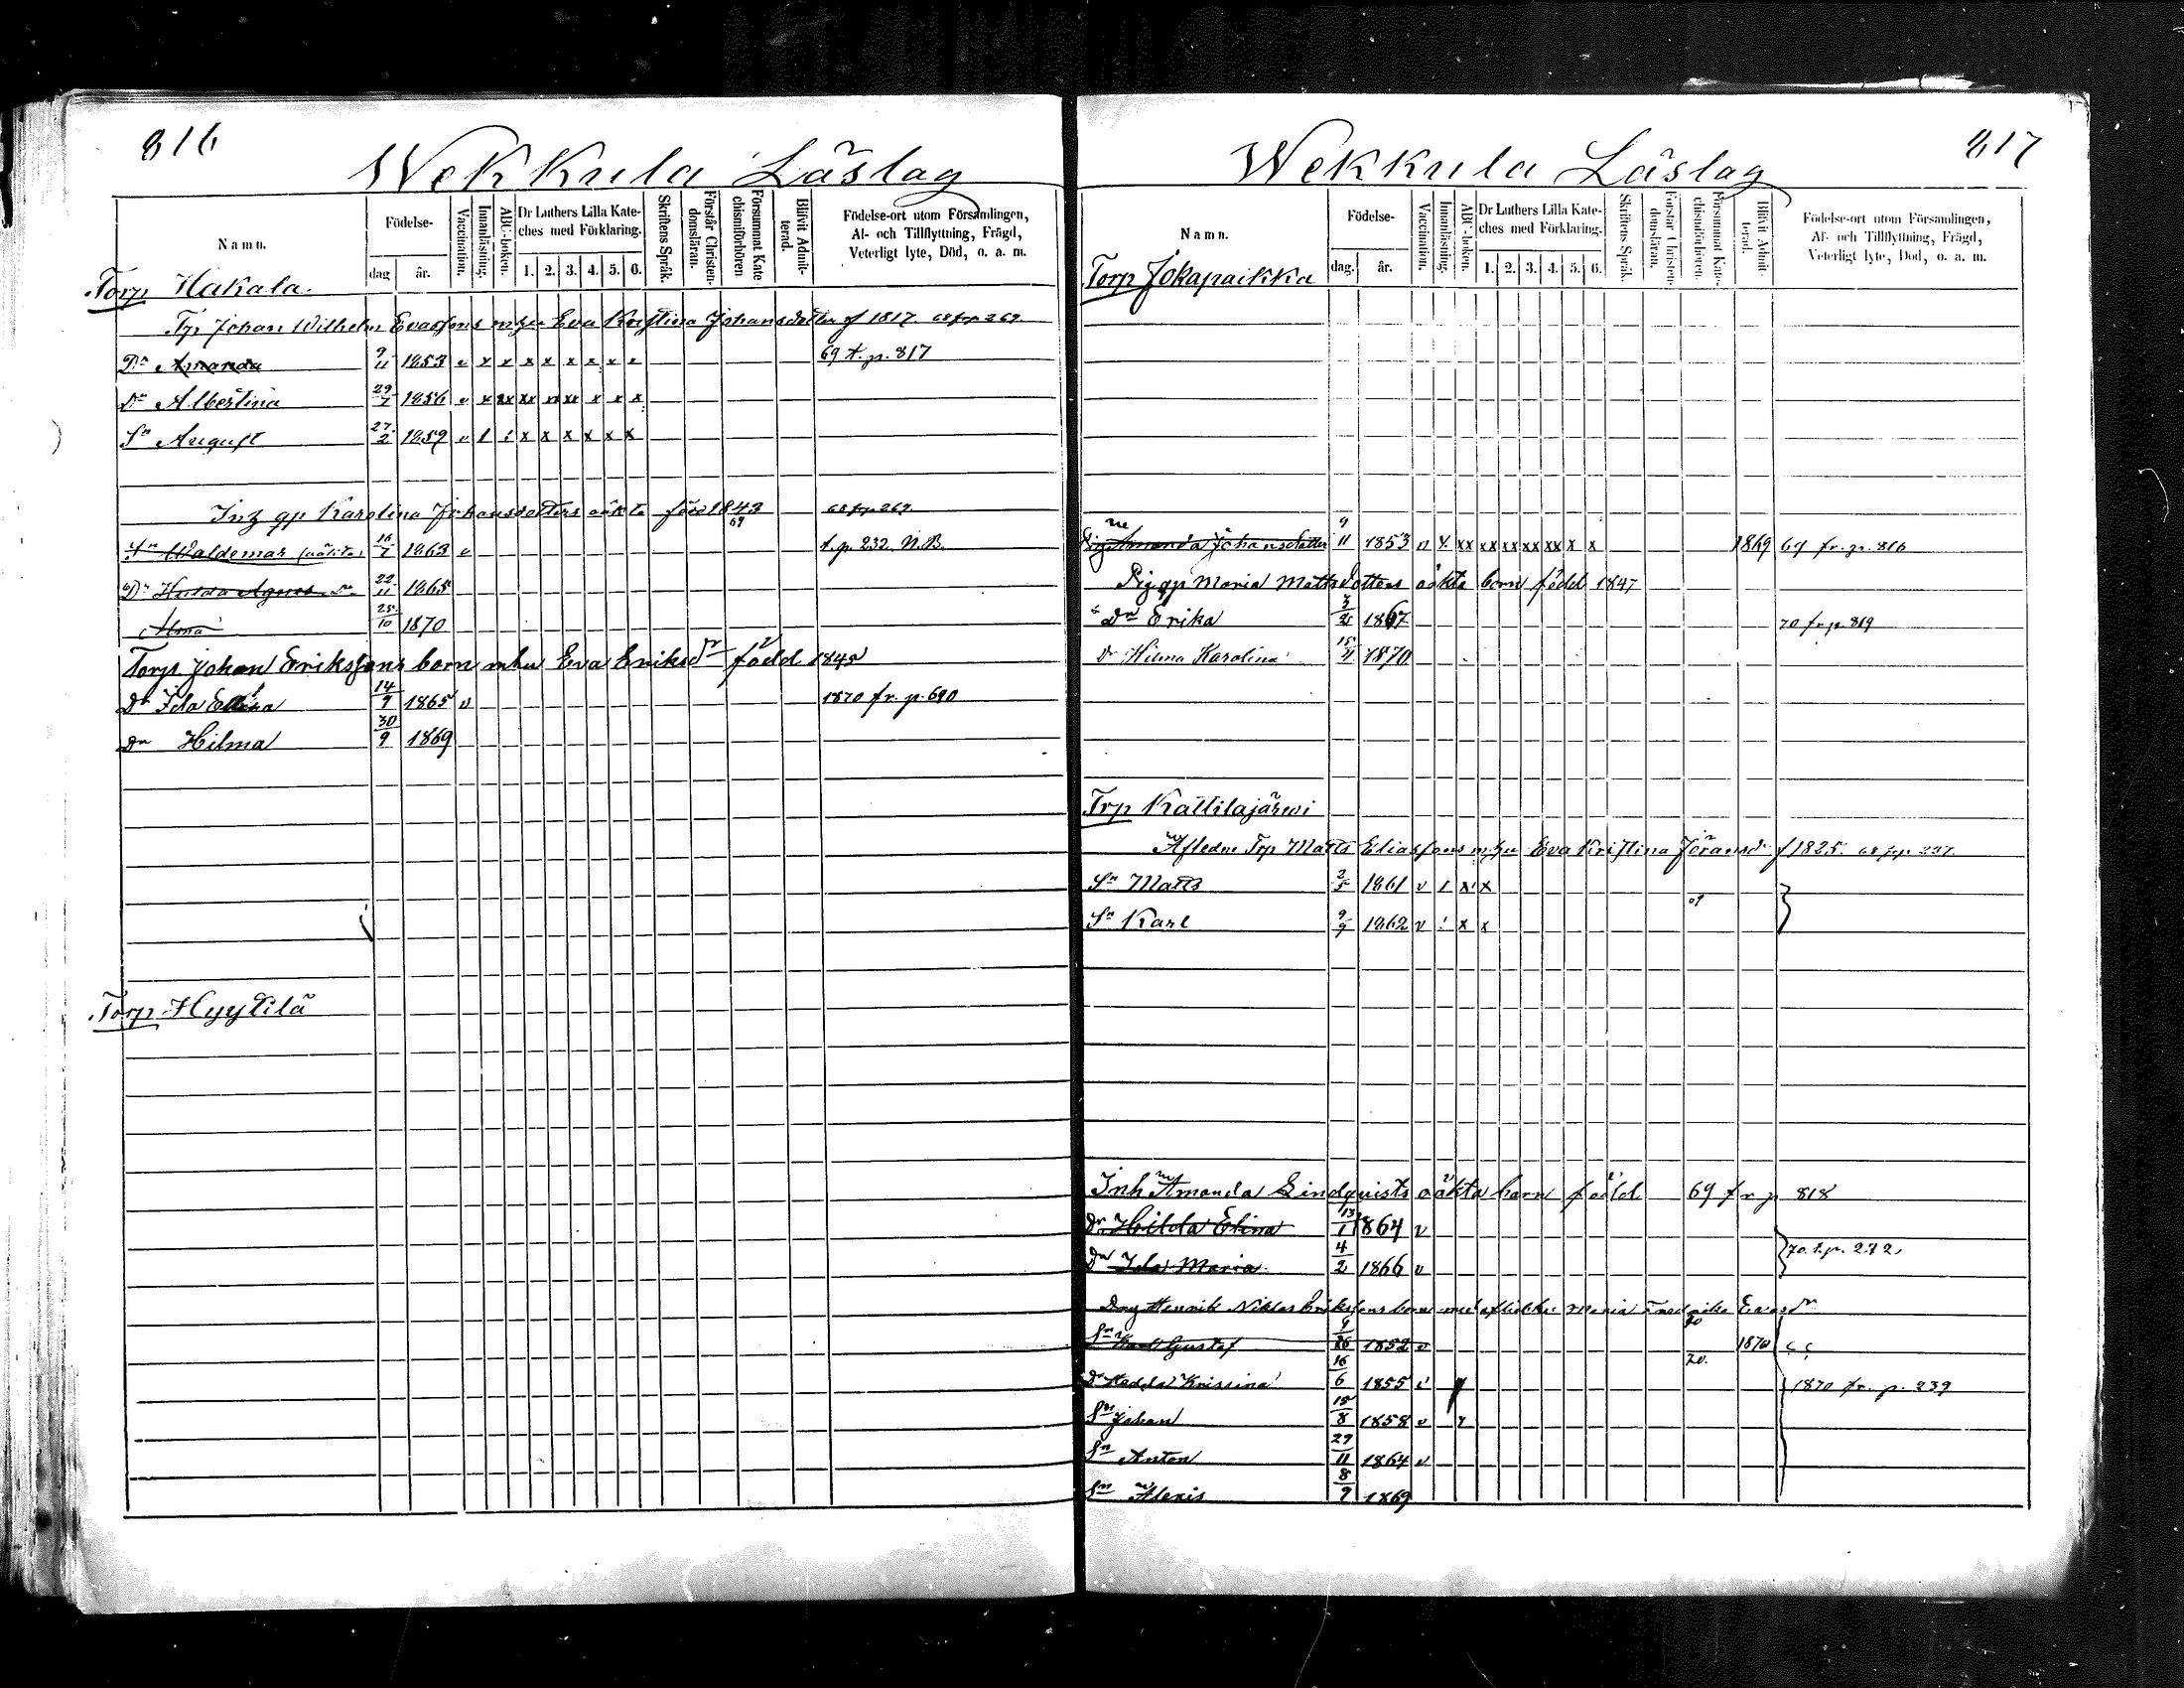 816
Wekkula Läslag
Namn.
Födelse-
dag
år.
Vaccination.
Innanläsning.
ABC-boken.
Dr Luthers Lilla Kate-
ches med Förklaring.
1. 2. 3. 4. 5. 6.
Skriftens Språk.
Förstår Christen-
domsläran.
Försummat Kate-
chismiförhören
Blifvit Admit-
terad.
Födelse-ort utom Församlingen,
Af- och Tillflyttning, Frägd,
Veterligt lyte, Död, o. a. m.
Torp Hakala.
Trp Johan Wilhelm Evassons Eva Kristina Johansdotter f 1817. 68 fr p 269.
Dr Amanda 9/11 1853 v x x x x x x x x 69 t. p. 817
Dr Albertina 29/7 1856 v x xx xx xx xx x x x
Sn August 27/2 1859 v x x x x x x
Karolina Johansdotters oäkta född 1843 68 fr p 269.
69
Sn Waldemar 16/7 1863 v t. p. 232. N.B.
Dr Hulda Agnes Dr 22/11 1865
Alma 25/10 1870
Torp. Johan Erikssons barn mhu Eva Eriksdr född 1842
Dr Ida 14/9 1865 v 1870 fr. p. 690
Dr Hilma 30/9 1869
Torp Hyytilä
817
Wekkula Läslag
Namn.
Födelse-
dag.
år.
Vaccination.
Innanläsning.
ABC-boken.
Dr Luthers Lilla Kate-
ches med Förklaring.
1. 2. 3. 4. 5. 6.
Skriftens Språk.
Förstår Christen-
domsläran.
Försummat Kate-
chismiförhören.
Blifvit Admit-
terad.
Födelse-ort utom Församlingen,
Af- och Tillflyttning, Frägd,
Veterligt lyte, Död, o. a. m.
Torp Jokapaikka
Pig Amanda Johansdotter 9/11 1853 v x xx xx xx xx xx x x 1869 69 fr. p. 816
Maria Mattsdotters oäkta barn född 1847
Dr Erika 3/2 1867 70 fr p 819
Dr Hilma Karolina 15/4 1870
Trp Kattilajärwi
Afledne Trp Matts Eliassons mhu Eva Kristina Jöransdr f 1825. 68 fr p. 227.
Sn Matts 2/5 1861 v x x
Sn Karl 9/9 1862 v x x
Inh Amanda Lindquists oäkta barn född 69 fr p 818
Dr Hilda Elina 13/1 1864 v
Dr Ida Maria 4/2 1866 v 70. t. p. 272
Henrik Niklas Erikssons barn med Maria Fredrika
70
Sn Karl Gustaf 1852 v 1870
70.
Dr Hedda Kristina 16/6 1855 v 1870 fr. p. 239
Sn Johan 15/8 1858 v
Sn Anton 29/11 1864 v
Sn Alexis 8/9 1869